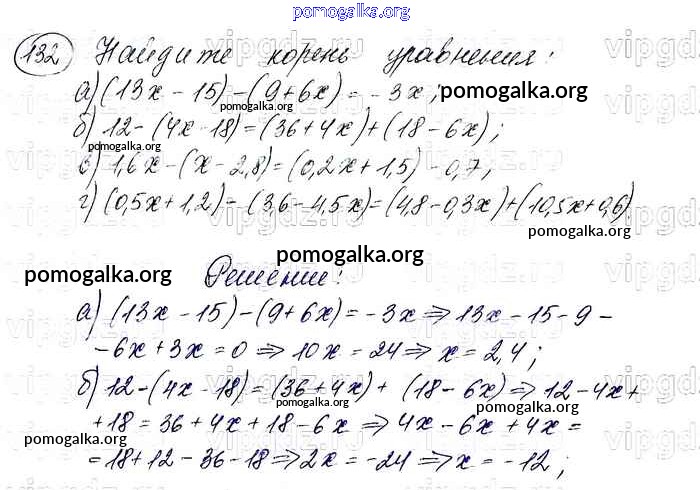 pomogalka.org
132 Найдите корень уравнения:
а) (13x - 15) - (9 + 6x) = - 3x; pomogalka.org
pomogalka.org
б) 12 - (4x - 18) = (36 + 4x) + (18 - 6x);
в) 1,6x - (x - 2,8) = (0,2x + 1,5) - 0,7;
pomogalka.org
г) (0,5x + 1,2) - (3,6 - 4,5x) = (4,8 - 0,3x) + (10,5x + 0,6)
pomogalka.org
pomogalka.org
pomogalka.org Решение:
а) (13x - 15) - (9 + 6x) = - 3x ⇒ 13x - 15 - 9 -
pomogalka.org
- 6x + 3x = 0 ⇒ 10x = 24 ⇒ x = 2,4;
б) 12 - (4x - 18) = (36 + 4x) + (18 - 6x) ⇒ 12 - 4x +
pomogalka.org
pomogalka.org
+ 18 = 36 + 4x + 18 - 6x ⇒ 4x - 6x + 4x =
pomogalka.org
pomogalka.org
= 18 + 12 - 36 - 18 ⇒ 2x = - 24 ⇒ x = - 12;
pomogalka.org
vipgdz.ru